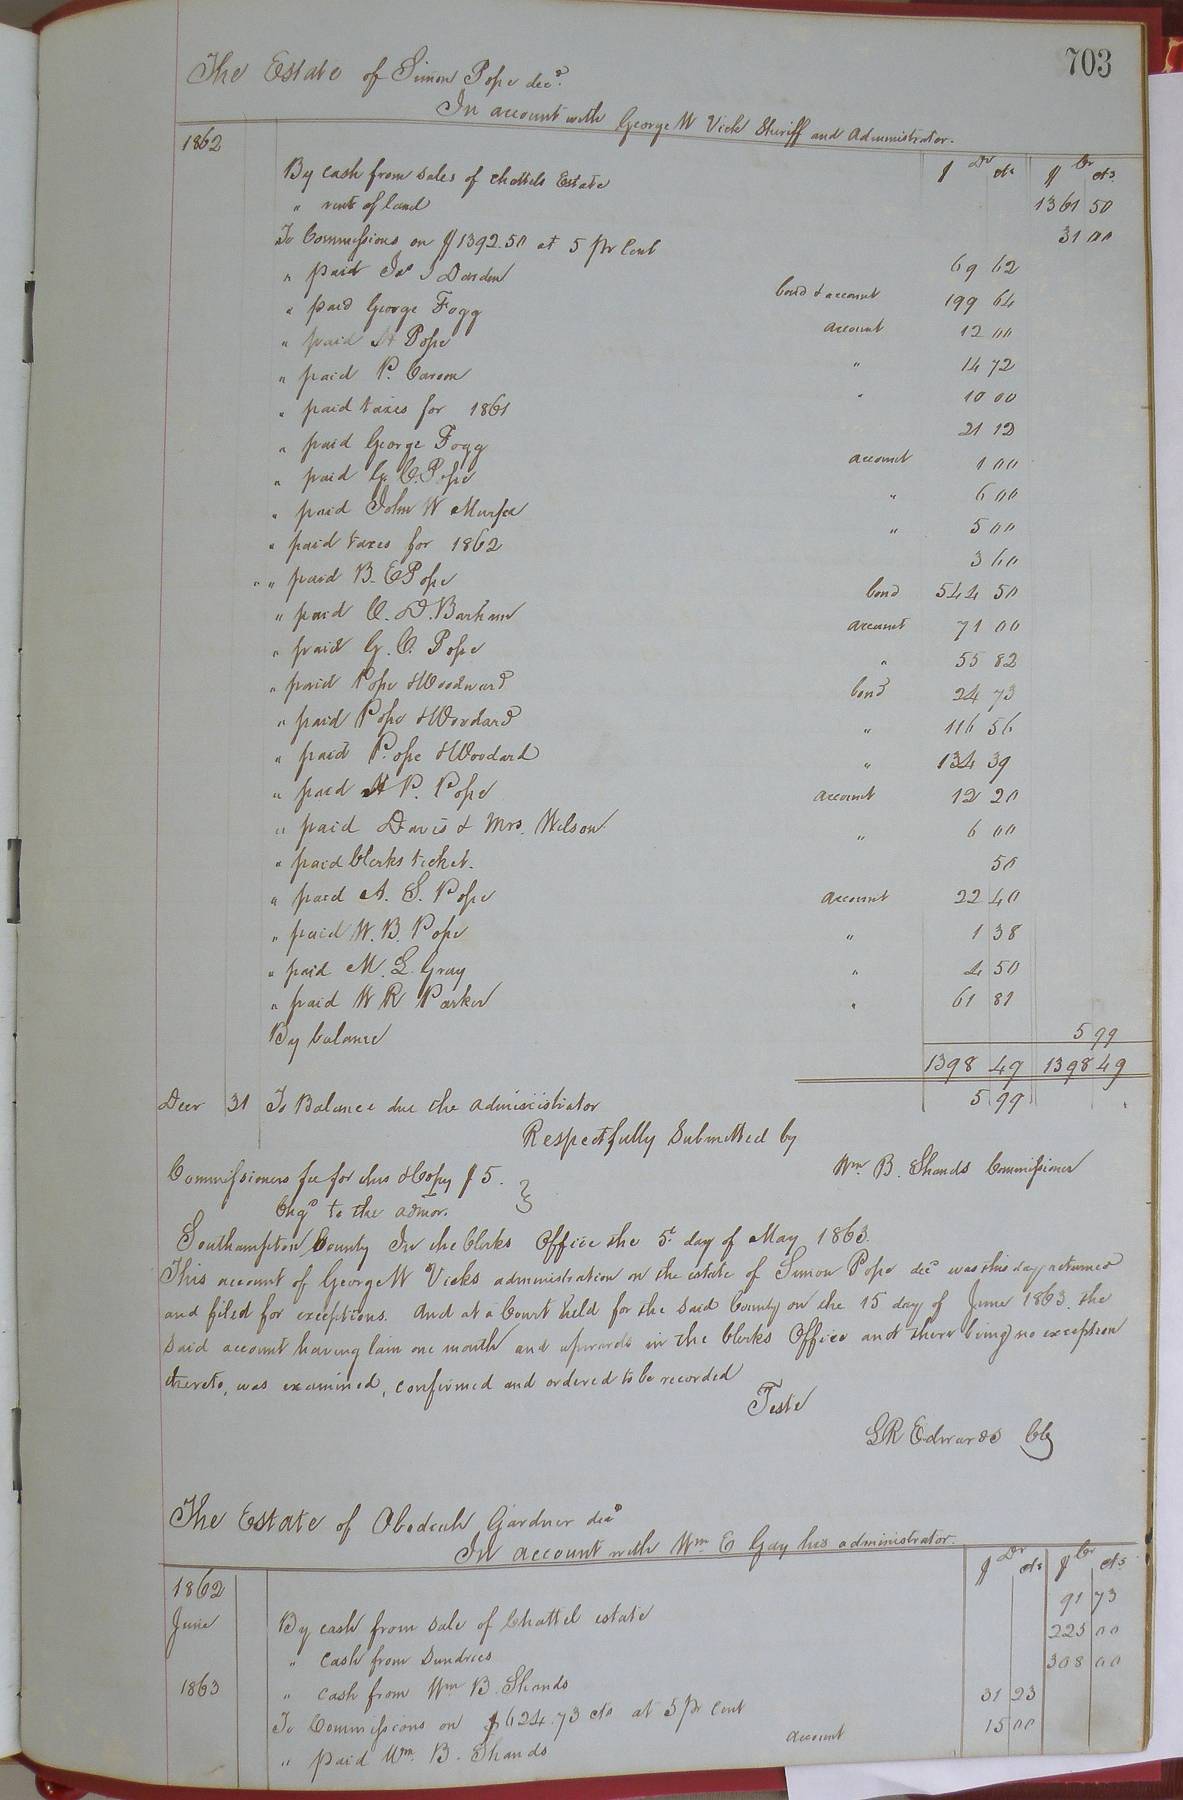 703
The Estate of Simon Pope decd.
In account with George W Vick Sheriff and Administrator.
1862
$ Dr cts $ Cr cts.
By cash from sales of chattels Estate 1361 50
" rent of land 31 00
To Commissions on $1392.50 at 5 pr Cent 69 62
" paid Jas J Darden bond & account 199 64
" paid George Fogg account 12 00
" paid H Pope " 14 72
" paid P. Carson " 10 00
" paid taxes for 1861 21 12
" paid George Fogg account 1 00
" paid G. C. Pope " 6 00
" paid John W Murfee " 5 00
" paid taxes for 1862 3 60
" " paid B. E Pope bond 544 50
" paid C. D. Barham account 71 00
" paid G. C. Pope " 55 82
" paid Pope & Woodward bond 24 73
" paid Pope & Woodard " 116 56
" paid Pope & Woodard " 134 39
" paid H P. Pope account 12 20
" paid Davis & Mrs. Wilson " 6 00
" paid Clerks ticket. 50
" paid A. S. Pope account 22 40
" paid W. B. Pope " 1 38
" paid M. L. Gray " 4 50
" paid W R Parker " 61 81
By balance 5 99
1398 49 1398 49
Decr 31 To Balance due the administrator 5 99
Respectfully Submitted by
Wm B. Shands Commissioner
Commissioners fee for this & Copy $5.
Chgd to the admor.
Southampton County In the Clerks Office the 5t day of May 1863.
This account of George W Vicks administration on the estate of Simon Pope decd was this day returned
and filed for exceptions. And at a Court held for the said County on the 15 day of June 1863. the
said account having lain one month and upwards in the Clerks Office and there being no exception
thereto, was examined, confirmed and ordered to be recorded
Teste
LR Edwards Clk
The Estate of Obediah Gardner decd
In account with Wm E Gay his administrator.
$ Dr cts $ Cr cts
1862
June By cash from sale of Chattel estate 91 73
" cash from Sundries 225 00
1863 " cash from Wm B. Shands 308 00
To Commissions on $624.73 cts at 5 pr Cent 31 23
" paid Wm. B. Shands account 15 00